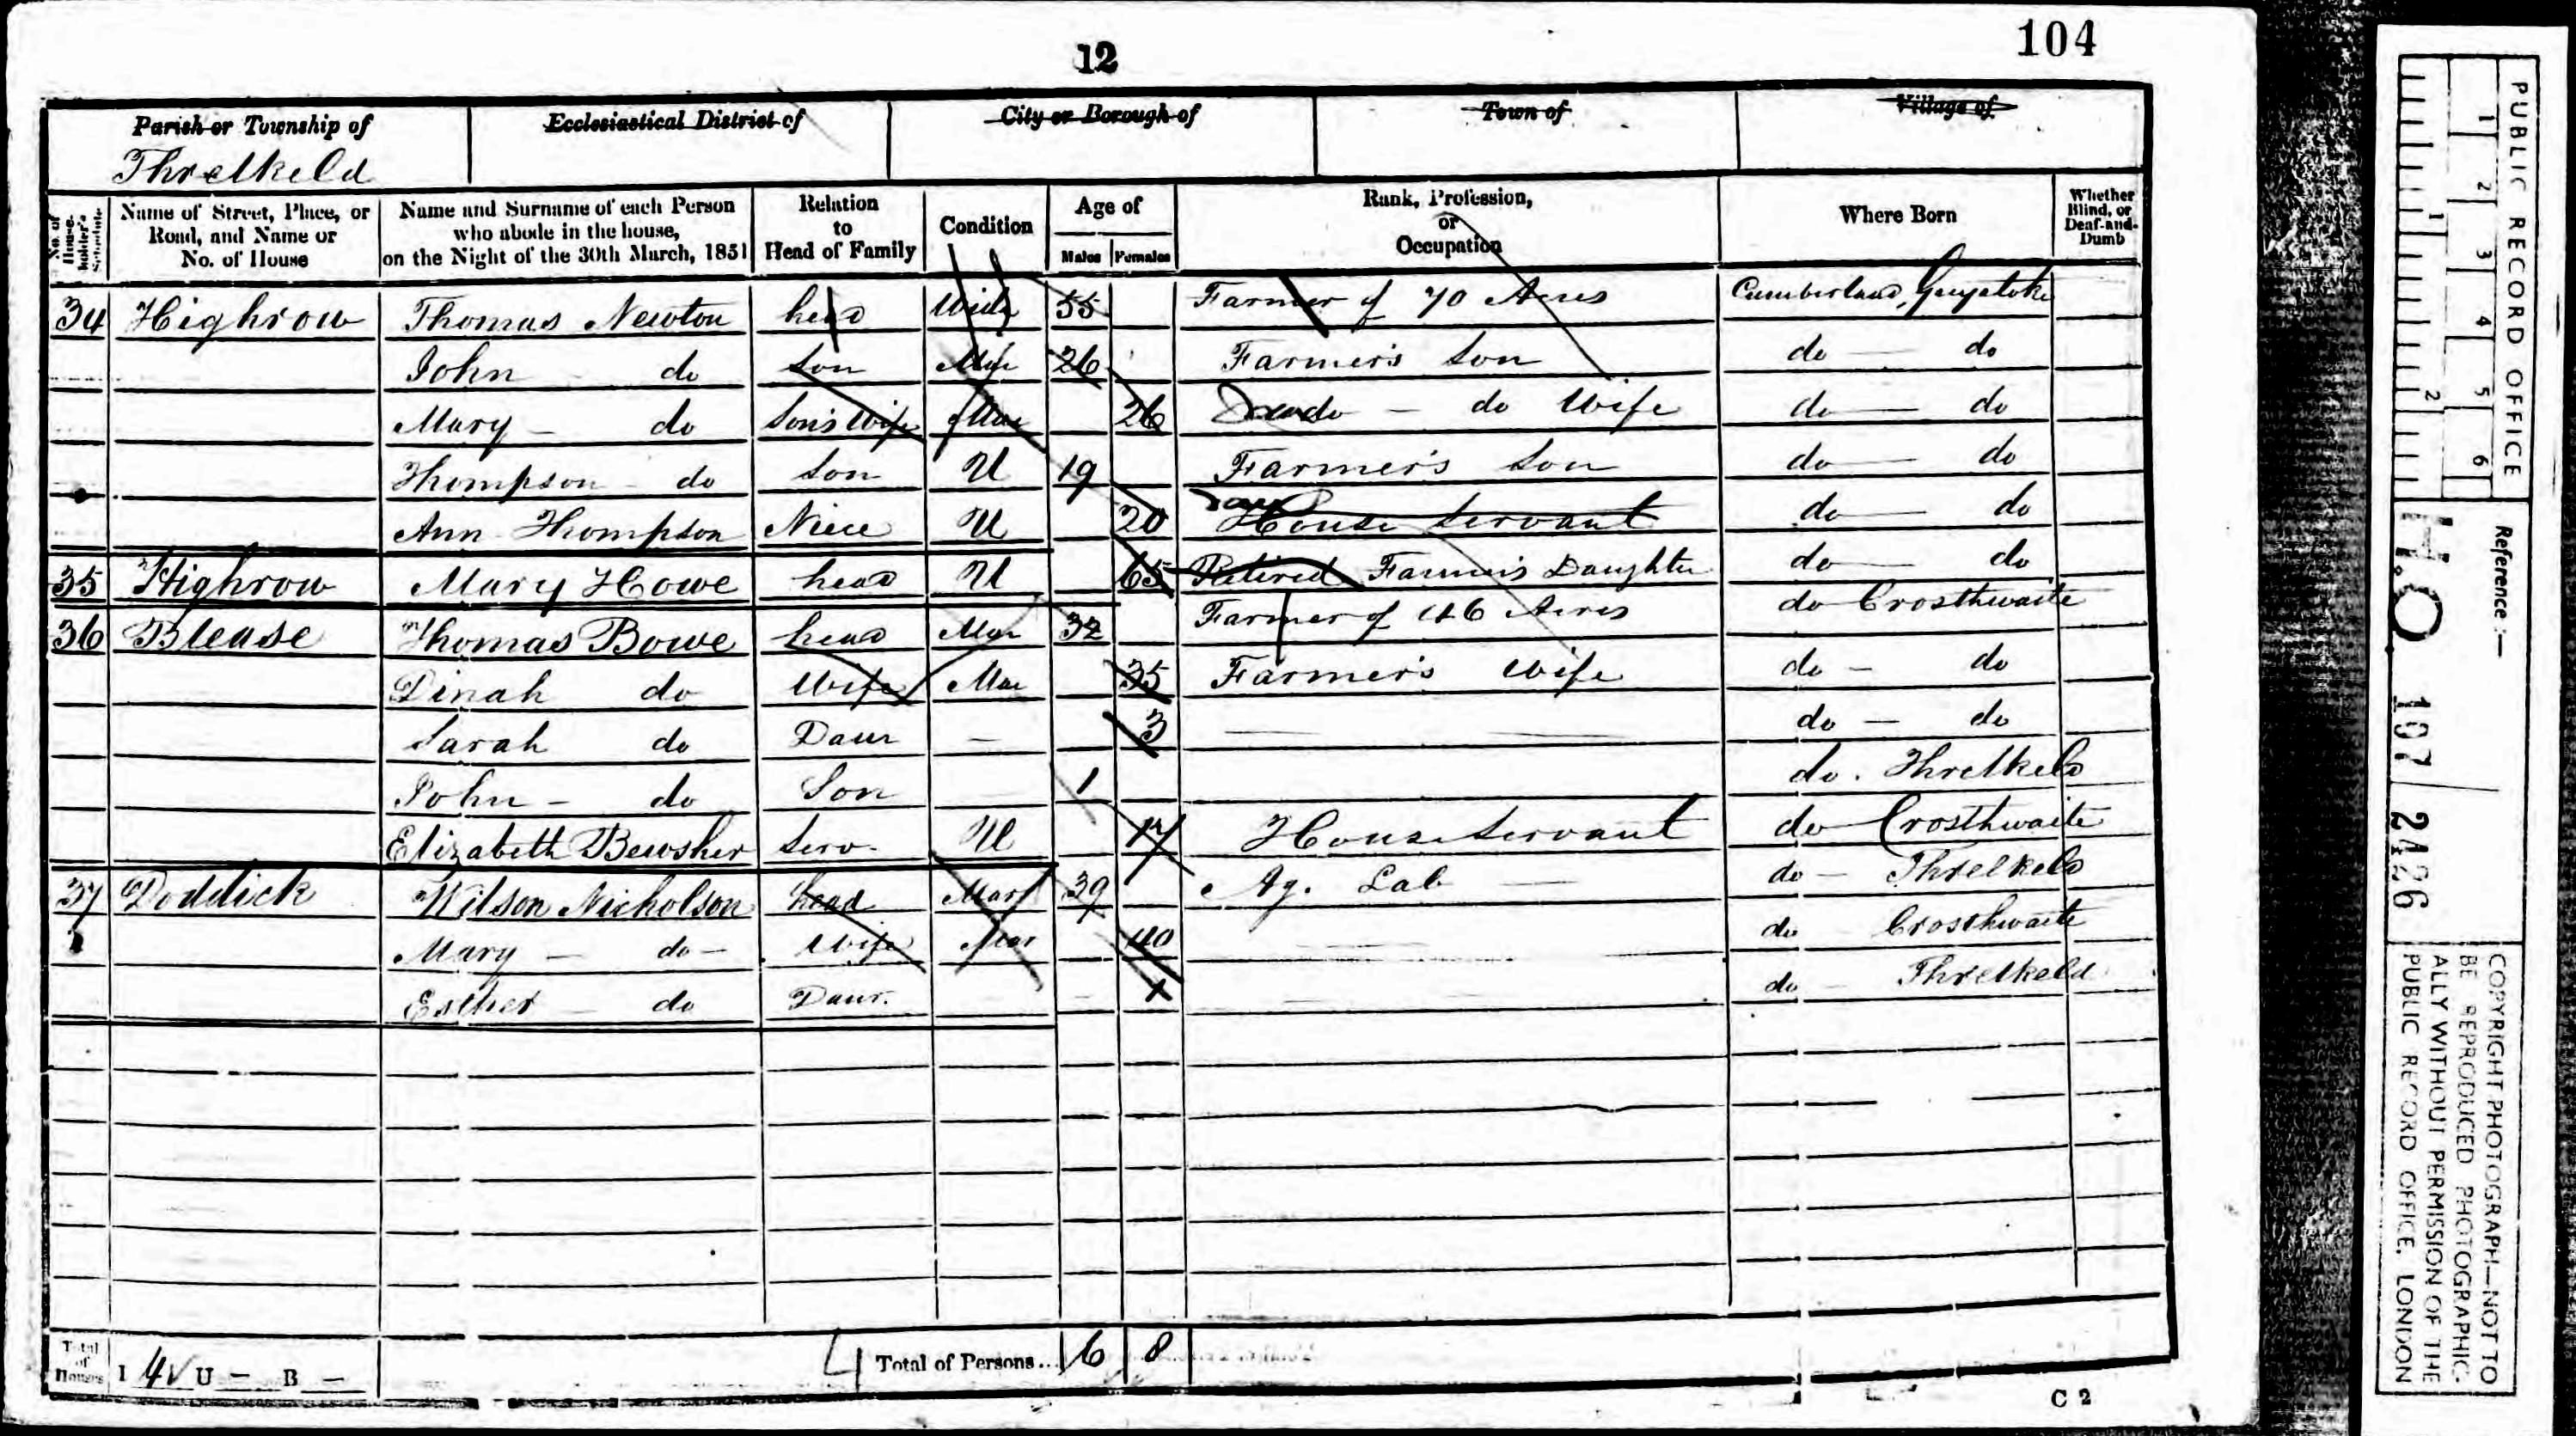 12
104
Parish or Township of
Threlkeld
Ecclesiastical District of
City or Borough of
Town of
Village of
No. of House-holder's Schedule
Name of Street, Place, or Road, and Name or No. of House
Name and Surname of each Person who abode in the house, on the Night of the 30th March, 1851
Relation to Head of Family
Condition
Age of
Males Females
Rank, Profession, or Occupation
Where Born
Whether Blind, or Deaf-and-Dumb
34 Highrow Thomas Newton head Widr 55 Farmer of 70 Acres Cumberland, Greystoke
John do Son Mar 26 Farmer's Son do do
Mary do Son's Wife Mar 26 do - do Wife do do
Thompson do Son U 19 Farmer's Son do do
Ann Thompson Niece U 20 House Servant do do
35 Highrow Mary Howe head U 65 Retired Farmer's Daughter do do
36 Blease Thomas Bowe head Mar 32 Farmer of 46 Acres do Crosthwaite
Dinah do Wife Mar 35 Farmer's Wife do - do
Sarah do Daur - 3 do - do
John - do Son 1 do. Threlkeld
Elizabeth Bewsher Serv. U 17 House Servant do Crosthwaite
37 Doddick Wilson Nicholson head Mar 39 Ag. Lab do - Threlkeld
Mary - do - Wife Mar 40 do Crosthwaite
Esther do Daur. do Threlkeld
Total of Houses I 4 U - B -
Total of Persons... 6 8
C 2
1 2 3 4 5 6
1 2
PUBLIC RECORD OFFICE
Reference :-
H.O. 107 / 2426
COPYRIGHT PHOTOGRAPH—NOT TO
BE REPRODUCED PHOTOGRAPHIC-
ALLY WITHOUT PERMISSION OF THE
PUBLIC RECORD OFFICE, LONDON